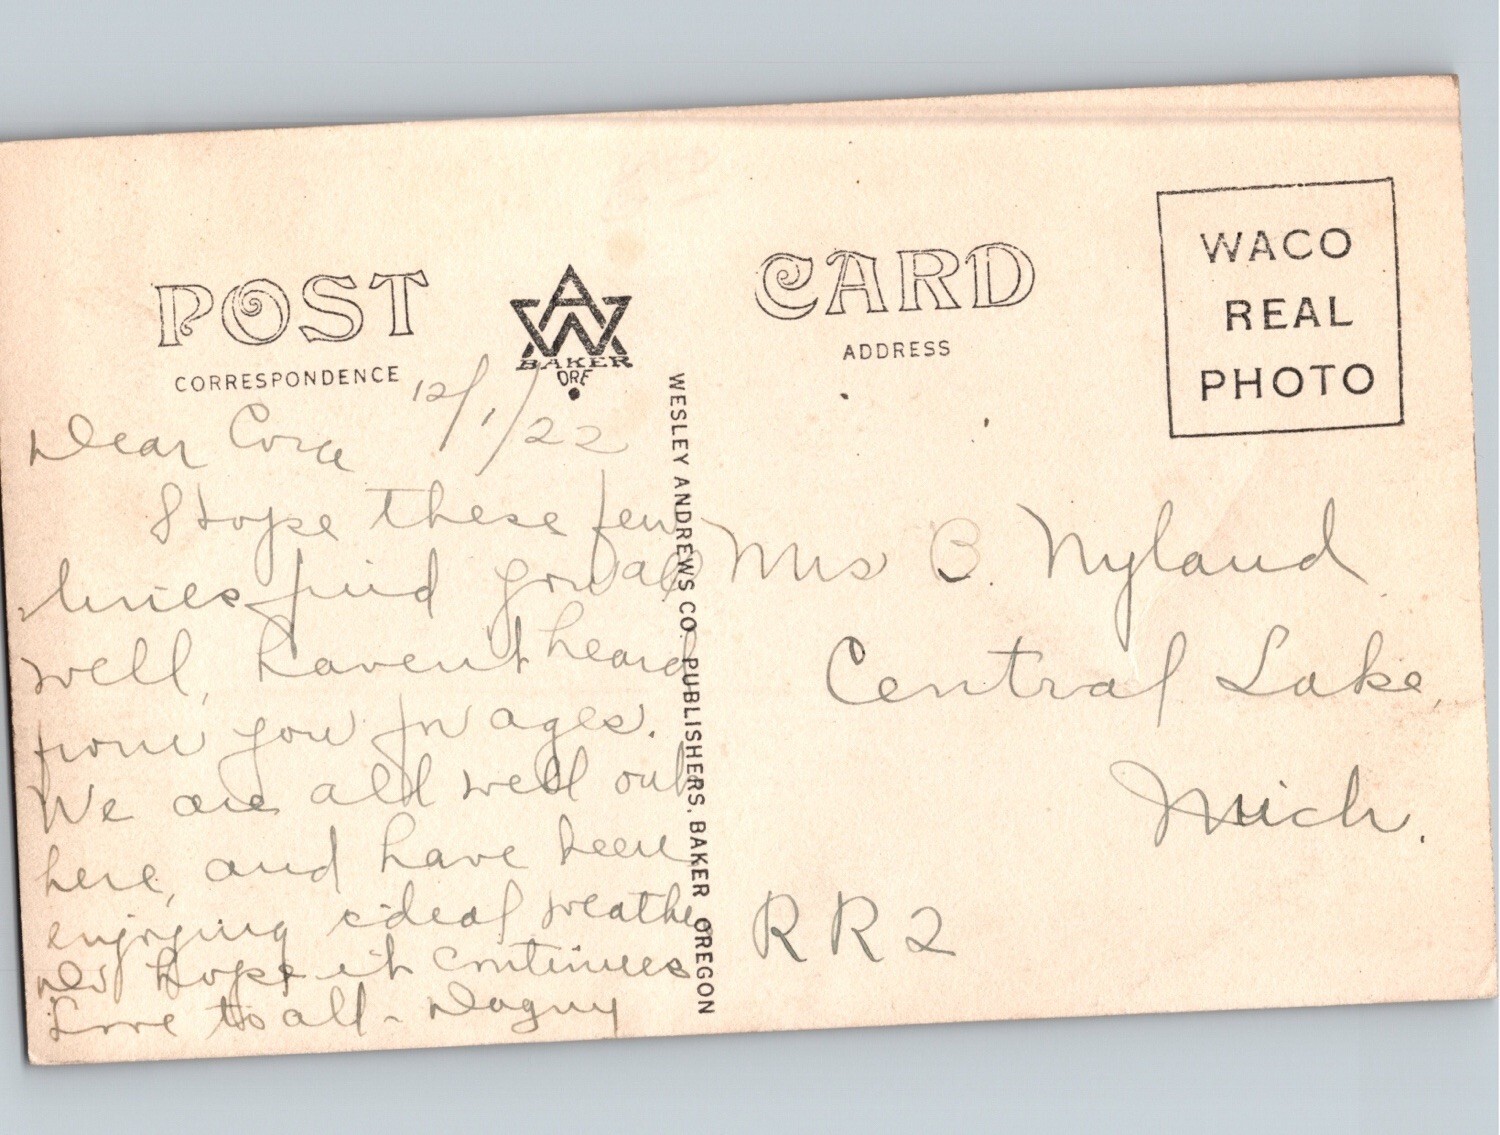 POST
CORRESPONDENCE
AW
BAKER
ORE
CARD
ADDRESS
WACO
REAL
PHOTO
WESLEY ANDREWS CO. PUBLISHERS, BAKER OREGON
12/1/22
Dear Cora
I Hope these few
lines find you all
well, haven't heard
from you in ages.
We are all well out
here, and have been
enjoying ideal weather
do hope it continues
Love to all - Dagny
Mrs B. Nyland
Central Lake,
Mich.
RR2